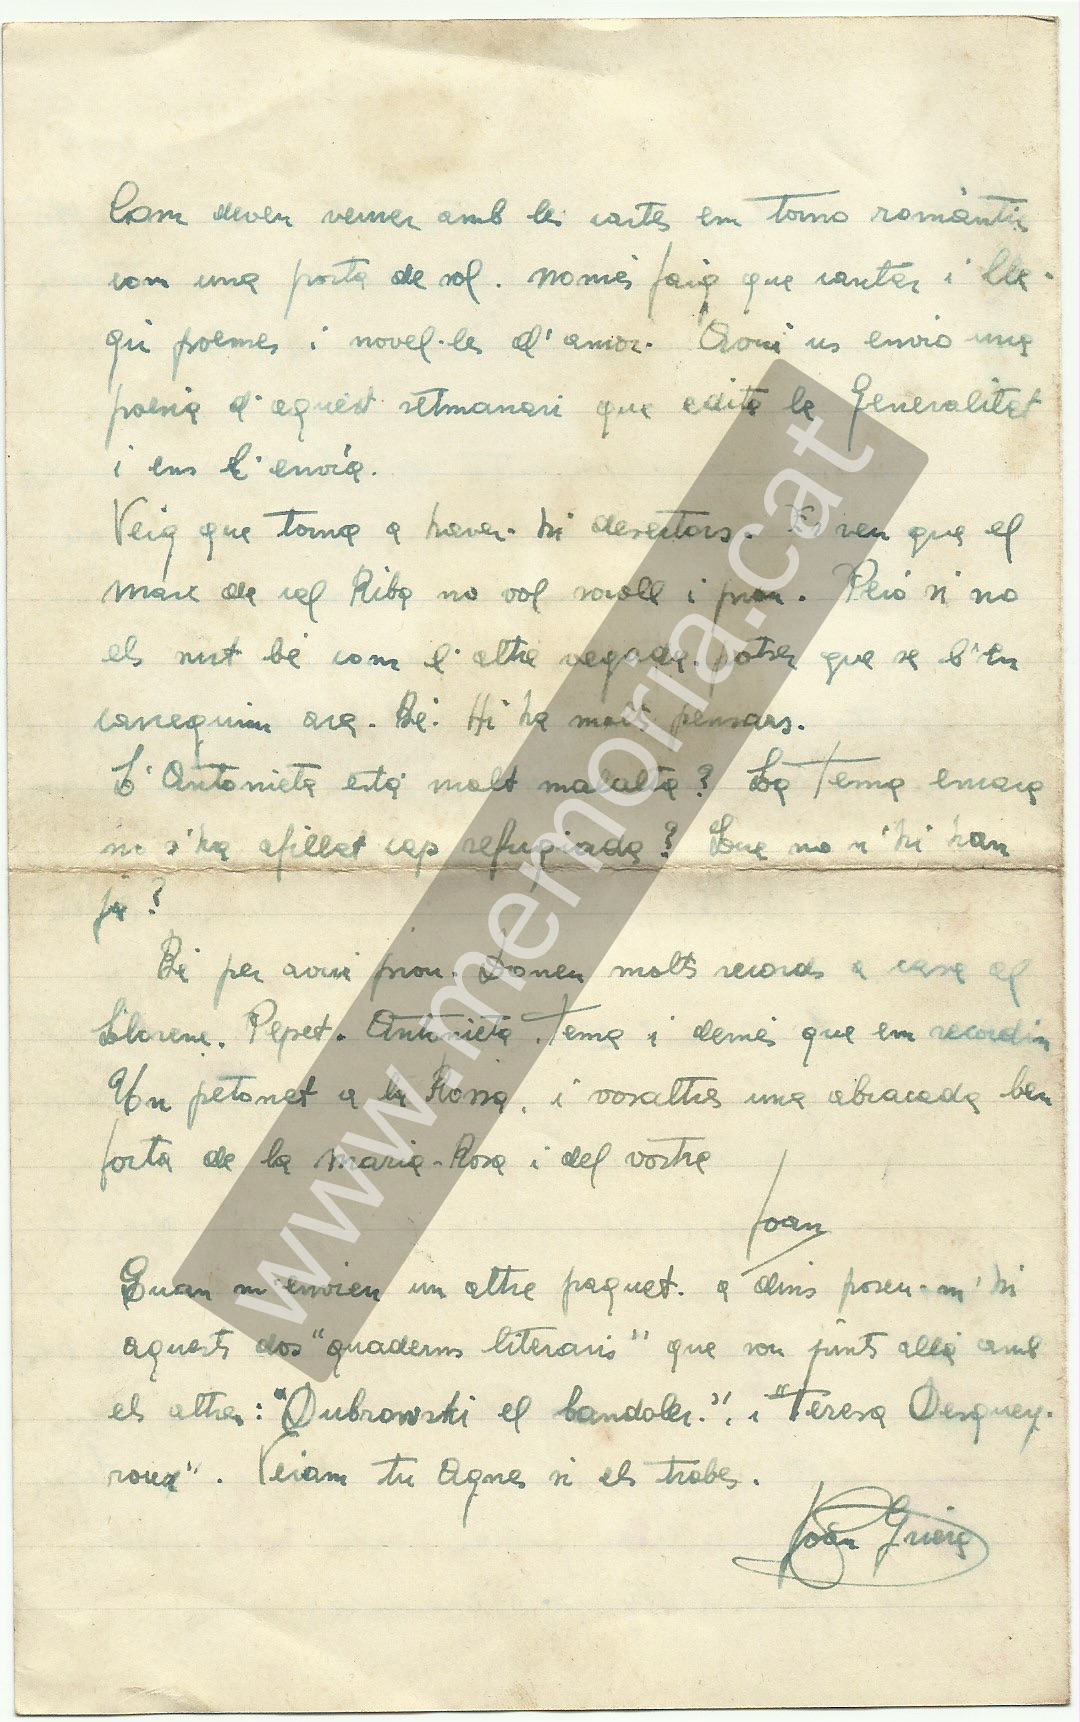 Com deveu veurer amb les cartes em torno romàntic
com una posta de sol. Només faig que cantar i lle-
gir poemes i novel·les d'amor. Avui us envio una
poesia d'aquest setmanari que edita la Generalitat
i ens l'envia.
Veig que torna a haver-hi desertors. Es veu que el
Marc de cal Riba no vol soroll i prou. Però si no
els surt bé com l'altre vegada potser que se l'en
carreguin ara. Bé. Hi ha molts pensars.
L'Antonieta està molt malalta? La Tema encara
no s'ha afillat cap refugiada? Que no n'hi han
ja?
Bé per avui prou. Doneu molts records a casa al
Llorenç. Pepet. Antonieta. Tema i demés que em recordin
Un petonet a la Rossa, i vosaltres una abracada ben
forta de la Maria-Rosa i del vostre
Joan
Quan m'envieu un altre paquet. a dins poseu-m'hi
aquests dos "quaderns literaris" que son junts allà amb
els altres: "Dubrowski el bandoler", i "Teresa Desquey-
roux". Veiam tu Agnes si els trobes.
Joan Griera
www.memoria.cat